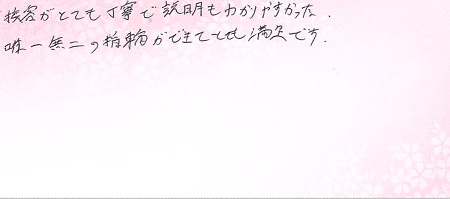 接客がとても丁寧で説明もわかりやすかった.
唯一無二の指輪ができてとても満足です.